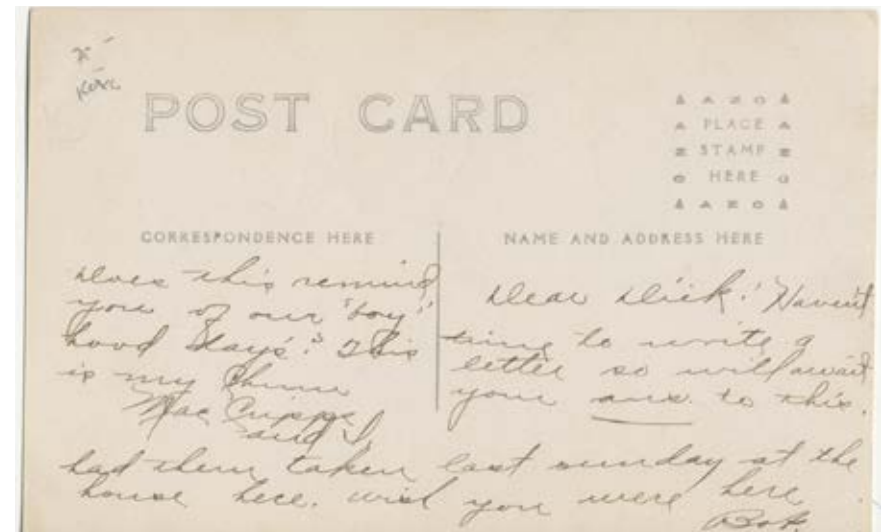 POST CARD
A Z O
PLACE
STAMP
HERE
A Z O
CORRESPONDENCE HERE
NAME AND ADDRESS HERE
Does this remind
you of our "boy"
hood days"? This
is my chum
Mac
and I.
Dear Dick: Havent
time to write a
letter so will await
your ans. to this.
had them taken last sunday at the
house here. wish you were here
Bob.